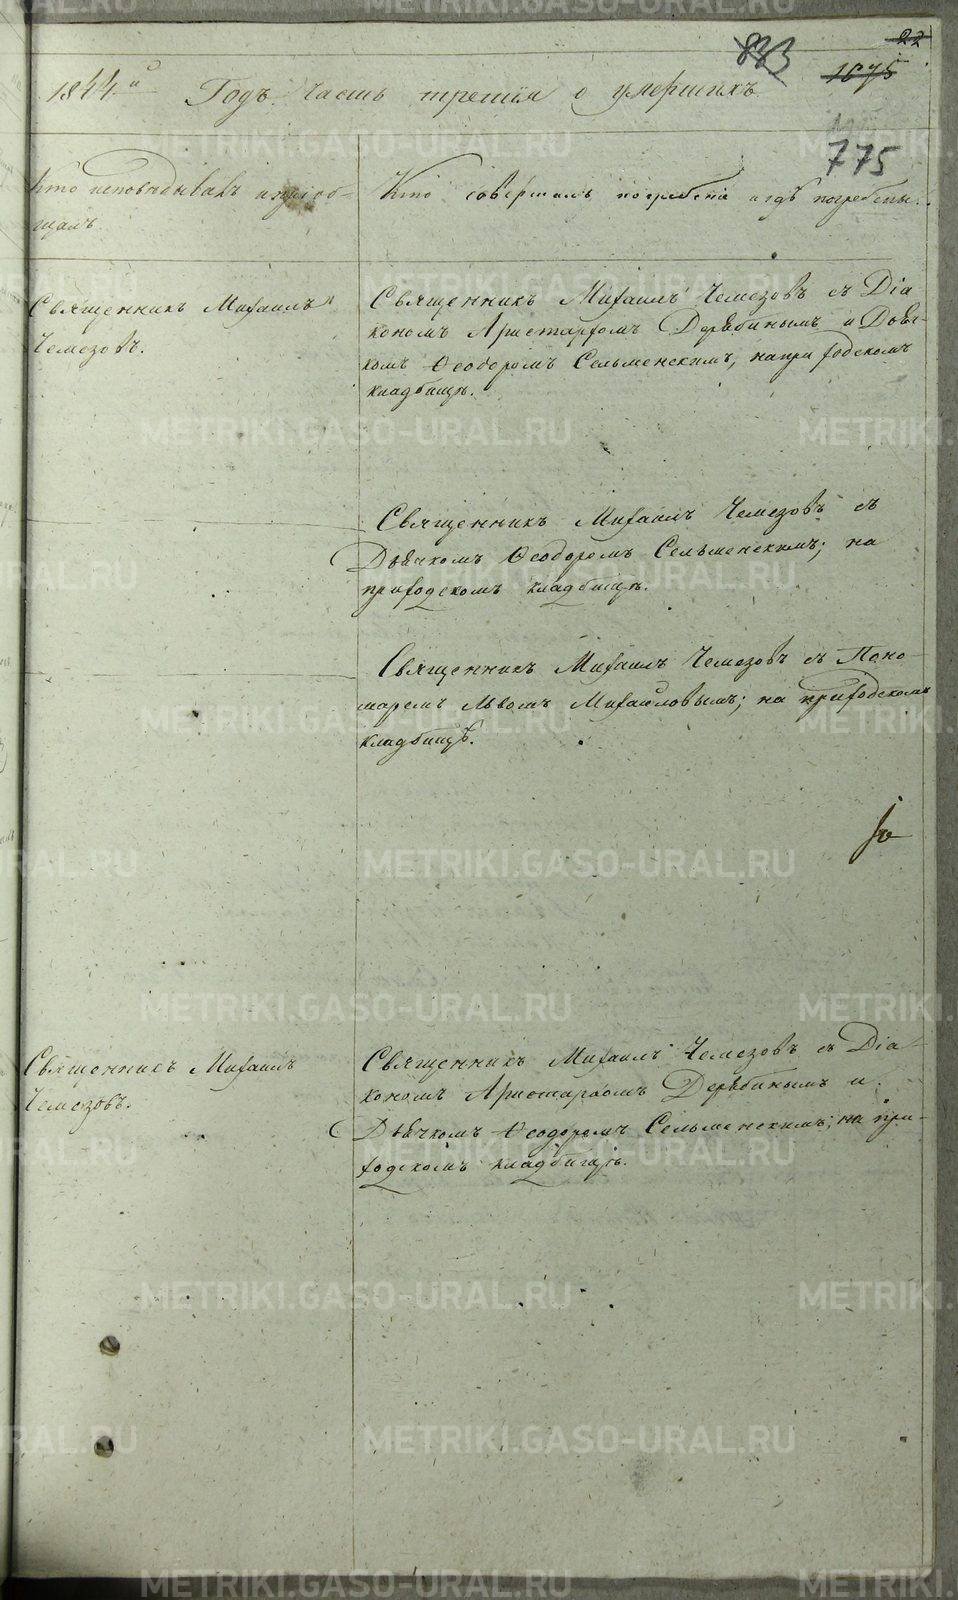 22
883
1075
1844й Годъ. Часть третія о умершихъ.
775
Кто исповѣдывалъ и пріоб-
щалъ.
Кто совершалъ погребеніе и гдѣ погребены.
Священникъ Михаилъ
Чемезовъ.
Священникъ Михаилъ Чемезовъ съ Діа
кономъ Аристархомъ Дерябинымъ и Дьяч-
комъ Ѳеодоромъ Сельменскимъ, на приходскомъ
кладбищѣ.
Священникъ Михаилъ Чемезовъ съ
Дьячкомъ Ѳеодоромъ Сельменскимъ; на
приходскомъ кладбищѣ.
Священникъ Михаилъ Чемезовъ съ Поно-
маремъ Львомъ Михаиловымъ; на приходскомъ
кладбищѣ.
Священникъ Михаилъ
Чемезовъ.
Священникъ Михаилъ Чемезовъ съ Діа-
кономъ Аристархомъ Дерябинымъ и
Дьячкомъ Ѳеодоромъ Сельменскимъ; на при-
ходскомъ кладбищѣ.
METRIKI.GASO-URAL.RU